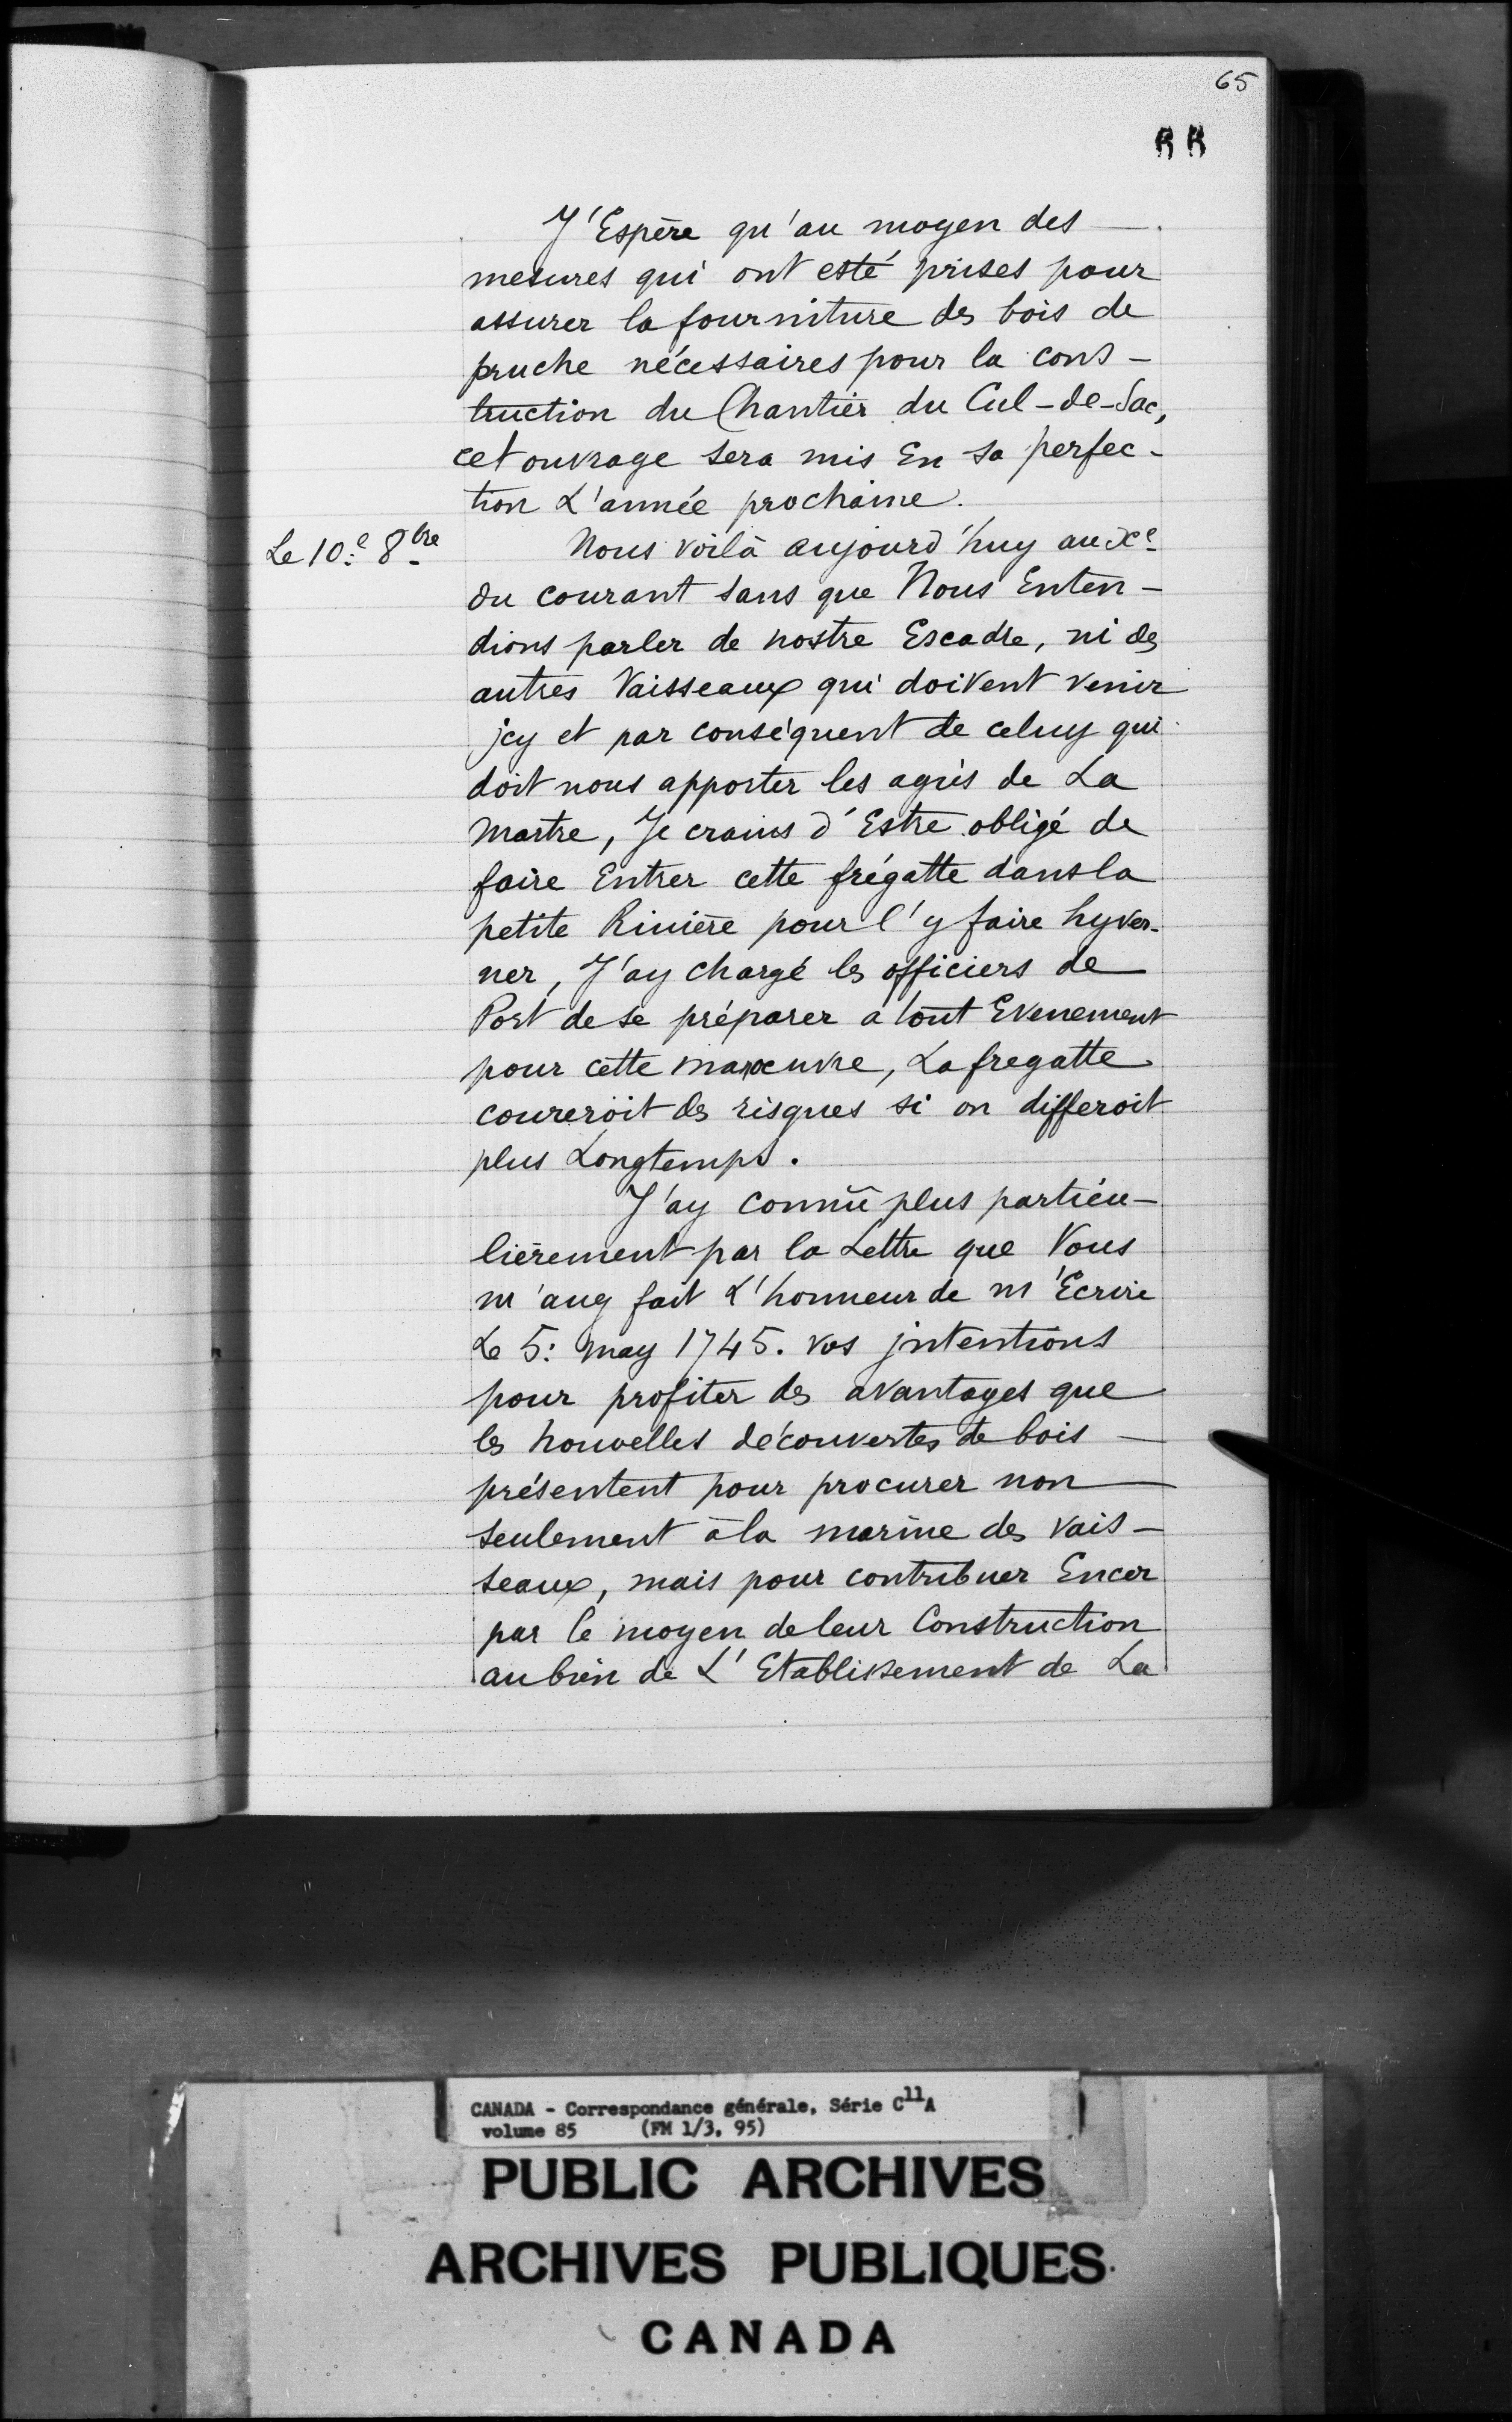 65
RR
J'Espère qu'au moyen des —
mesures qui ont esté prises pour
assurer la fourniture des bois de
pruche nécessaires pour la cons-
truction du Chantier du Cul-de-Sac,
cet ouvrage sera mis En sa perfec-
tion L'année prochaine.
Le 10.e 8bre
Nous voilà aujourd'huy au Xe
du courant sans que Nous Enten-
dions parler de nostre Escadre, ni des
autres Vaisseaux qui doivent venir
jcy et par conséquent de celuy qui
doit nous apporter les agrés de La
martre, Je crains d'Estre obligé de
faire Entrer cette frégatte dans la
petite Rivière pour l'y faire hyver-
ner, J'ay chargé les officiers de
Port de se préparer à tout Evenement
pour cette manoeuvre, La fregatte
coureroit des risques si on differoit
plus Longtemps.
J'ay connû plus particu-
lièrement par la Lettre que Vous
m'aug fait L'honneur de m'Ecrire
Le 5: may 1745. vos jntentions
pour profiter des avantages que
les nouvelles découvertes de bois —
présentent pour procurer non —
seulement à la marine des vais-
seaux, mais pour contribuer Encor
par le moyen de leur Construction
au bien de L'Etablissement de La
CANADA - Correspondance générale, Série C11A
volume 85 (FM 1/3, 95)
PUBLIC ARCHIVES
ARCHIVES PUBLIQUES
CANADA